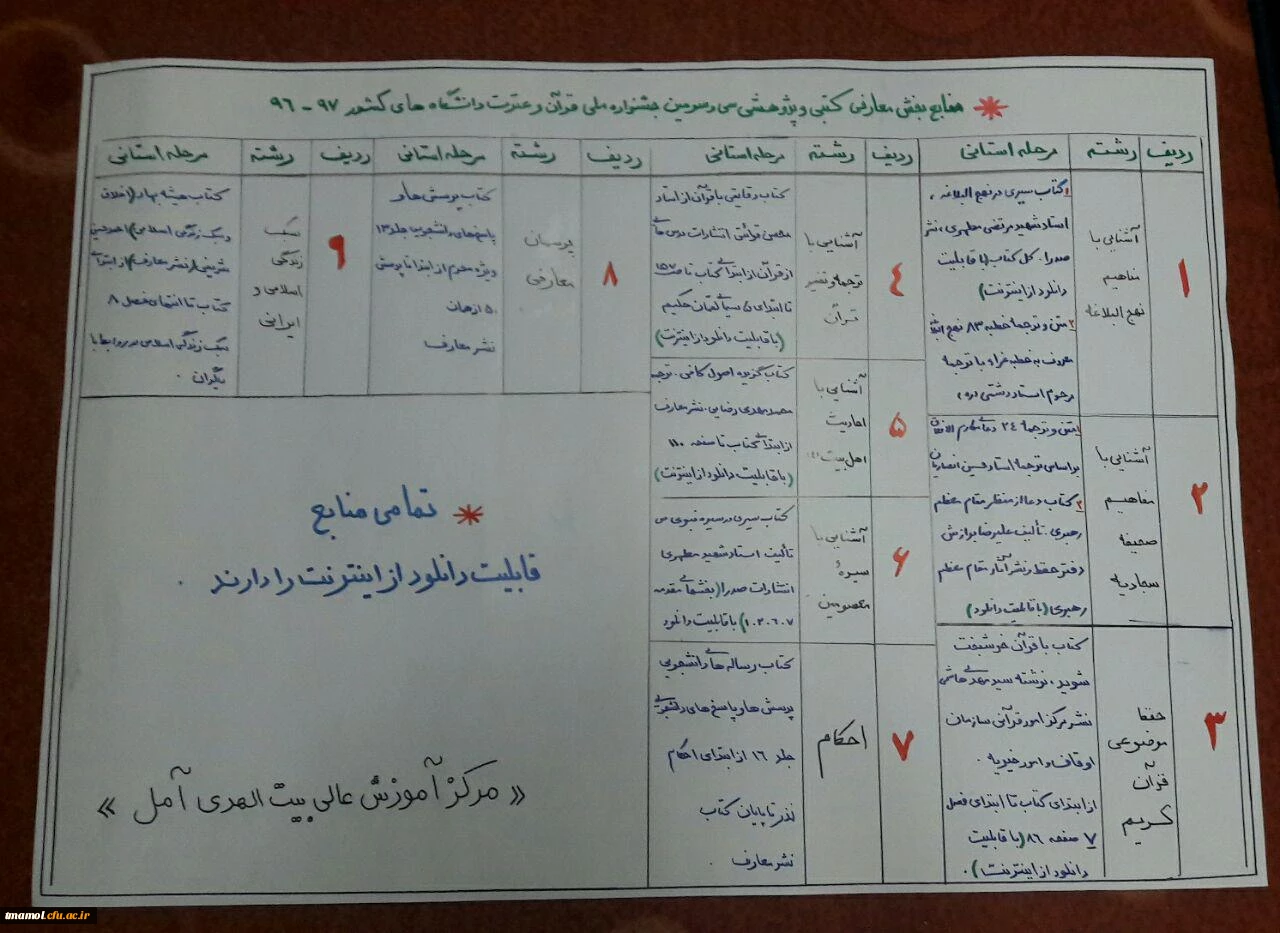 منابع بخش معارفی کتبی و پژوهشی سی و سومین جشنواره ملی قرآن و عترت دانشگاه های کشور ۹۷ - ۹۶
ردیف رشته مرحله استانی
۱
آشنایی با
مفاهیم
نهج البلاغه
۱ کتاب سیری در نهج البلاغه ،
استاد شهید مرتضی مطهری ، نشر
صدرا . کل کتاب (با قابلیت
دانلود از اینترنت)
۲ متن و ترجمه خطبه ۸۳ نهج البلاغه
معروف به خطبه غراء با ترجمه
مرحوم استاد دشتی (ره)
۲
آشنایی با
مفاهیم
صحیفه
سجادیه
۱ متن و ترجمه ۲۴ دعای مکارم الاخلاق
بر اساس ترجمه استاد حسین انصاریان
۲ کتاب دعا از منظر مقام معظم
رهبری . تألیف علیرضا برازش
دفتر حفظ و نشر آثار مقام معظم
رهبری (با قابلیت دانلود)
۳
حفظ
موضوعی
قرآن
کریم
کتاب با قرآن خوشبخت
شوید ، نوشته سید مهدی هاشمی
نشر مرکز امور قرآنی سازمان
اوقاف و امور خیریه .
از ابتدای کتاب تا ابتدای فصل
۷ صفحه ۸۶ (با قابلیت
دانلود از اینترنت) .
ردیف رشته مرحله استانی
۴
آشنایی با
ترجمه و تفسیر
قرآن
کتاب دقایقی با قرآن از استاد
محسن قرائتی انتشارات درس هایی
از قرآن از ابتدای کتاب تا ص ۱۵۷
تا ابتدای سیمای لقمان حکیم
(با قابلیت دانلود از اینترنت)
۵
آشنایی با
احادیث
اهل بیت
کتاب گزیده اصول کافی . ترجمه
محمد مهدی رضایی . نشر معارف
از ابتدای کتاب تا صفحه ۱۱۰
(با قابلیت دانلود از اینترنت)
۶
آشنایی با
سیرهٔ
معصومین
کتاب سیری در سیره نبوی ص
تألیف استاد شهید مطهری
انتشارات صدرا (بخشهای مقدمه
۱،۲،۶،۷) با قابلیت دانلود
۷
احکام
کتاب رساله های دانشجویی
پرسش ها و پاسخ های دانشجویی
جلد ۱۶ از ابتدای احکام
نذر تا پایان کتاب
نشر معارف .
ردیف رشته مرحله استانی
۸
پرسمان
معارفی
کتاب پرسش ها و
پاسخ های دانشجویی جلد ۱۳
ویژه محرم از ابتدا تا پرسش
۵۰ از همان
نشر معارف
ردیف رشته مرحله استانی
۹
سبک
زندگی
اسلامی و
ایرانی
کتاب همیشه بهار (اخلاق
و سبک زندگی اسلامی) احمد حسین
شریفی (نشر معارف) از ابتدای
کتاب تا انتهای فصل ۸
سبک زندگی اسلامی در روابط با
دیگران .
تمامی منابع
قابلیت دانلود از اینترنت را دارند .
« مرکز آموزش عالی بیت الهدی آمل »
tmamol.cfu.ac.ir